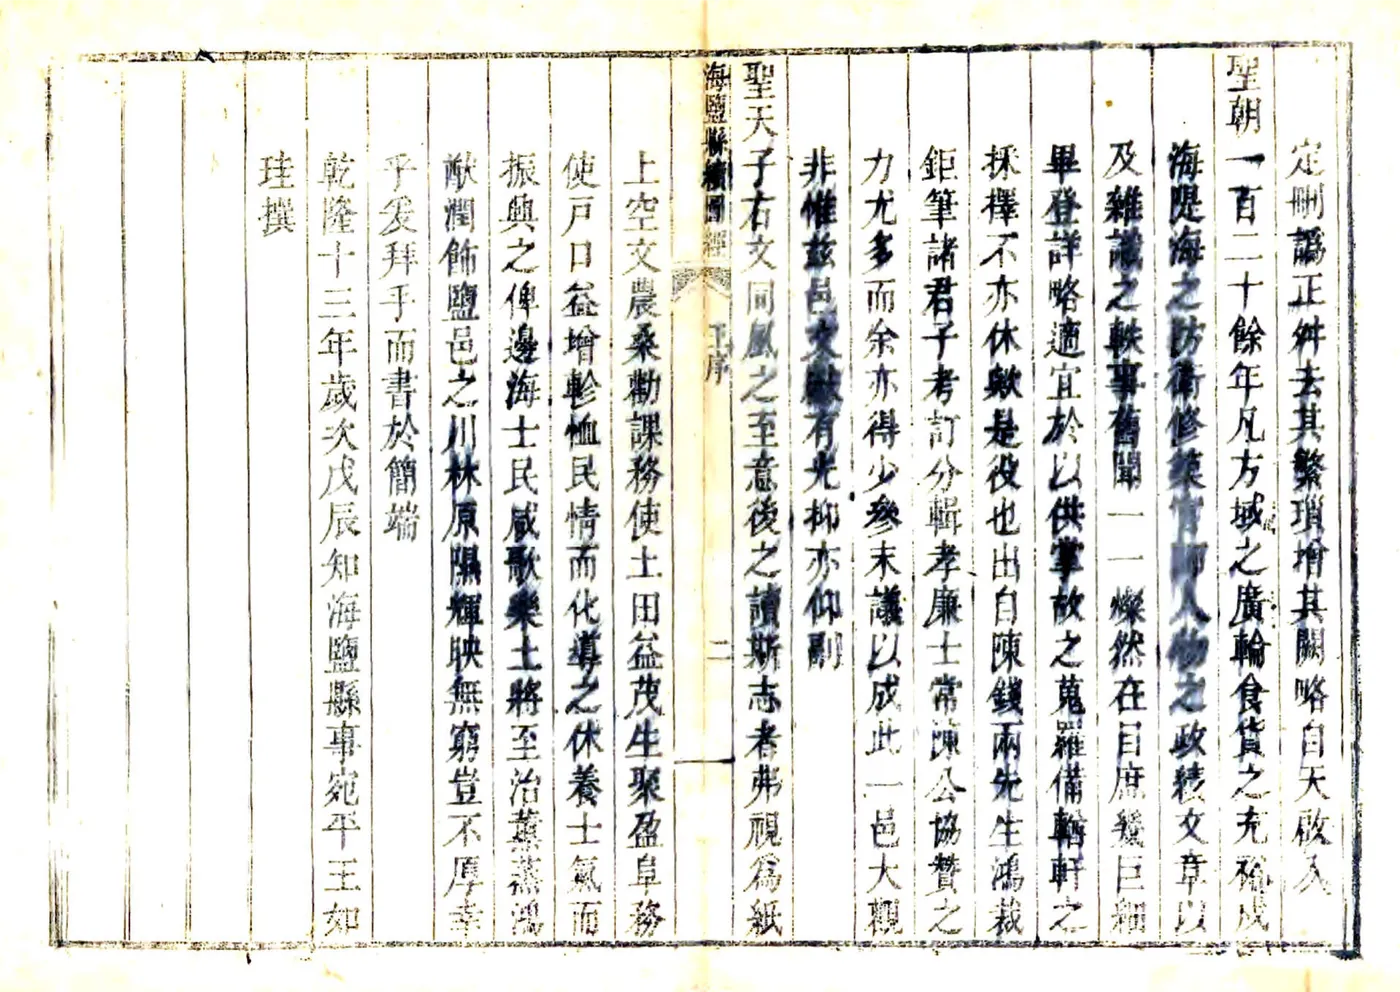 定刪譌正舛去其繁瑣增其闕略自天啟入
聖朝一百二十餘年凡方域之廣輪食貨之充裕戍
海隄海之防衛修築官師人物之政績文章以
及雜議之軼事舊聞一一燦然在目庶幾巨細
畢登詳略適宜於以供掌故之蒐羅備輶軒之
採擇不亦休歟是役也出自陳錢兩先生鴻裁
鉅筆諸君子考訂分輯孝廉士常陳公協贊之
力尤多而余亦得少參末議以成此一邑大觀
非惟茲邑文獻有光抑亦仰副
聖天子右文同風之至意後之讀斯志者弗視爲紙
海鹽縣續圖經
王序
二
上空文農桑勸課務使土田益茂生聚盈阜務
使戸口益增軫恤民情而化導之休養士氣而
振興之俾邊海士民咸歌樂土將至治薰蒸鴻
猷潤飾鹽邑之川林原隰輝映無窮豈不厚幸
乎爰拜手而書於簡端
乾隆十三年歲次戊辰知海鹽縣事宛平王如
珪撰